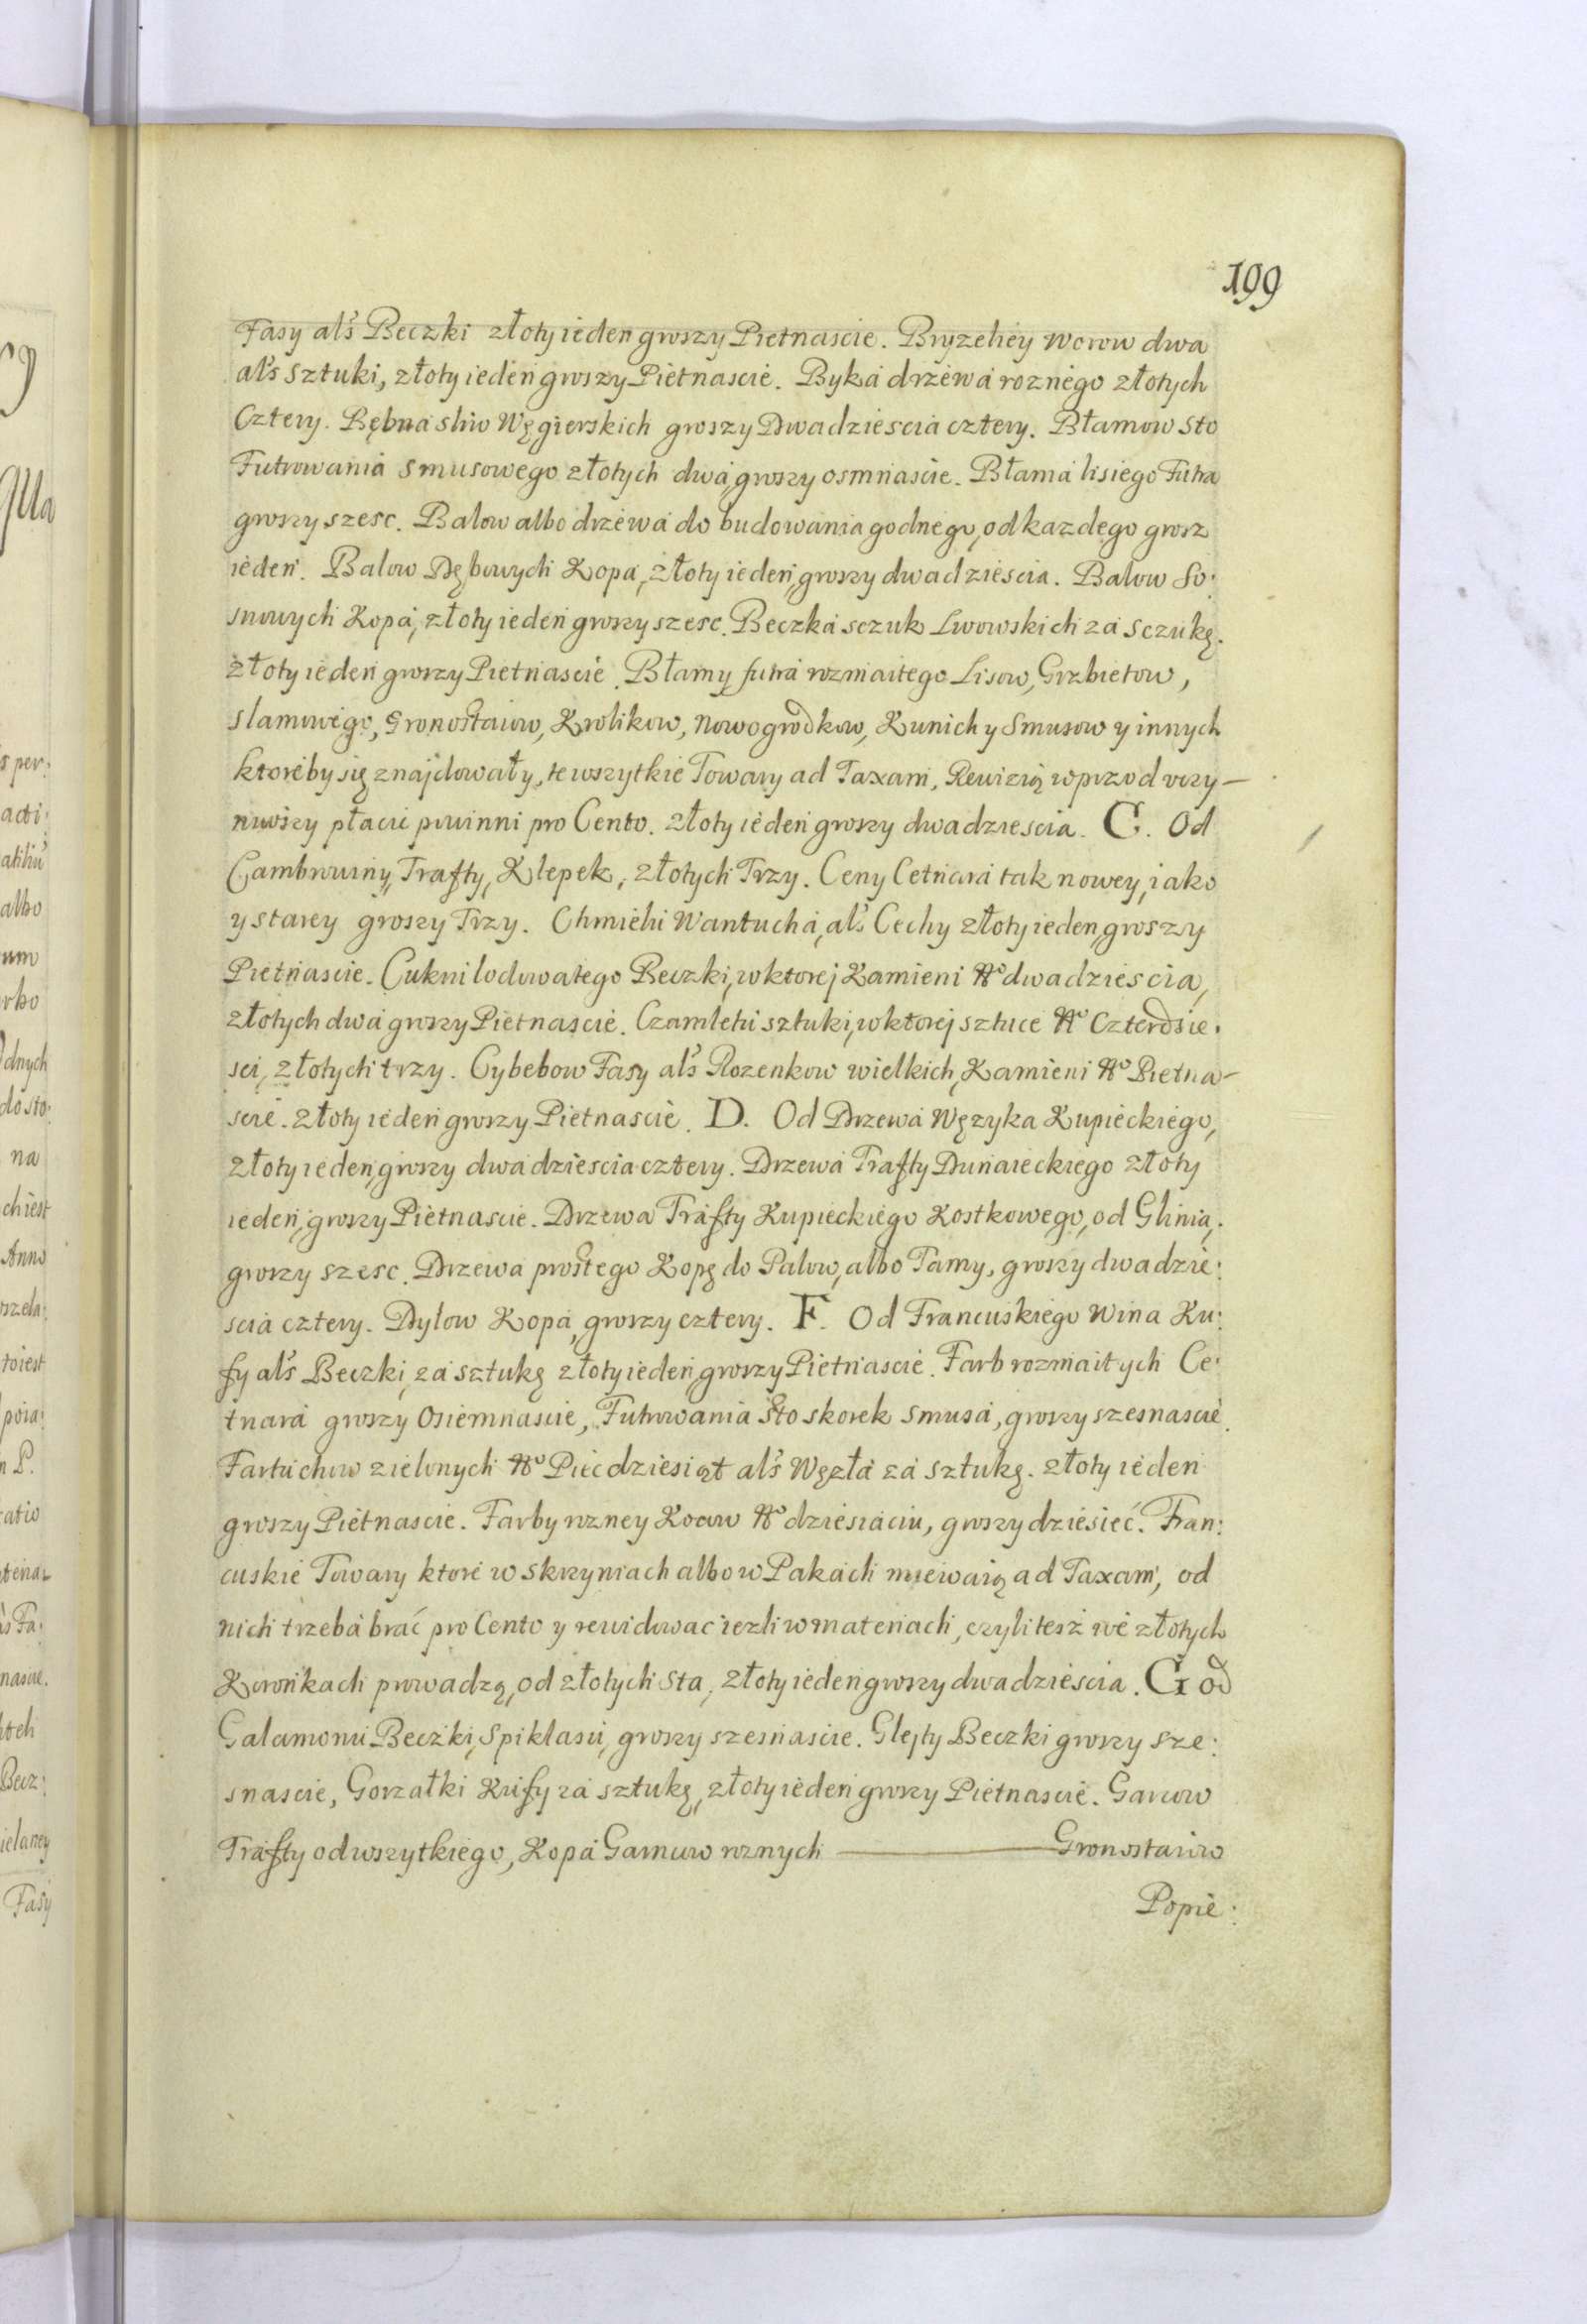 199
Fasy als Beczki złoty ieden groszy Pietnascie. Bryzeliey worow dwa
als sztuki, złoty ieden groszy Pietnascie. Byka drzewa roznego złotych
Cztery. Bębna sliw Węgierskich groszy Dwadziescia cztery. Błamow sto
Futrowania smusowego złotych dwa, groszy osmnascie. Błama lisiego Futra
groszy szesc. Balow albo drzewa do budowania godnego, od kazdego grosz
ieden. Balow Dębowych Kopa, złoty ieden, groszy dwadziescia. Balow So:
snowych Kopa, złoty ieden groszy szesc. Beczka sczuk Lwowskich za sczukę.
złoty ieden groszy Pietnascie. Błamy futra rozmaitego Lisow, Grzbietow,
slamowego, Gronostaiow, Krolikow, nowogrodkow, Kunich y Smusow y innych
ktoreby się znajdowały, te wszytkie Towary ad Taxam, Rewizią wprzod vczy-
niwszy płacic powinni pro Cento. złoty ieden groszy dwadziescia. C. Od
Cambrowiny, Trafty, Klepek, złotych Trzy. Ceny Cetnara tak nowey, iako
y starey groszy Trzy. Chmielu Wantucha, als Cechy złoty ieden, groszy
Pietnascie. Cukru lodowatego Beczki, w ktorej Kamieni No dwadziescia,
złotych dwa groszy Pietnascie. Czamletu sztuki, w ktorej sztuce No Czterdzie:
sci, złotych trzy. Cybebow Fasy als Rozenkow wielkich, Kamieni No Pietna-
scie. złoty ieden groszy Pietnascie. D. Od Drzewa Węzyka Kupieckiego,
złoty ieden, groszy dwadziescia cztery. Drzewa Trafty Dunaieckiego złoty
ieden, groszy Pietnascie. Drzewa Trafty Kupieckiego Kostkowego, od Glinia,
groszy szesc. Drzewa prostego Kopę do Palow, albo Tamy, groszy dwadzie:
scia cztery. Dylow Kopa, groszy cztery. F. Od Francuskiego wina Ku:
fy als Beczki, za sztukę złoty ieden, groszy Pietnascie. Farb rozmaitych Ce:
tnara groszy Osiemnascie, Futrowania sto skorek smusa, groszy szesnascie.
Fartuchow zielonych No Piecdziesiąt als Węzła za sztukę. złoty ieden
groszy Pietnascie. Farby rozney Kocow No dziesiaciu, groszy dziesieć. Fran:
cuskie Towary ktore w skrzyniach albo w Pakach miewaią ad Taxam, od
nich trzeba brać pro Cento y rewidowac iezli w materiach, czyli tesz we złotych
Koronkach prowadzą, od złotych sta, złoty ieden groszy dwadziescia. G od
Galamonu Beczki, Spiklasu, groszy szesnascie. Glejty Beczki groszy sze:
snascie, Gorzałki Kufy za sztukę, złoty ieden groszy Pietnascie. Garcow
Trafty od wszytkiego, Kopa Garncow roznych Gronostaiow
Popie: